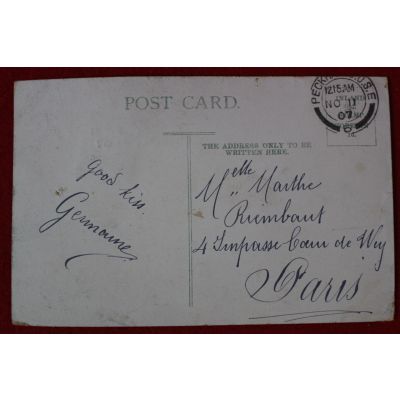 POST CARD.
THE ADDRESS ONLY TO BE
WRITTEN HERE.
PECKHAM S.E
12.15 AM
NO 11
07
6
INLAND
Good kiss.
Germaine
Melle Marthe
Rimbaut
4 Impasse Cour de Wey
Paris